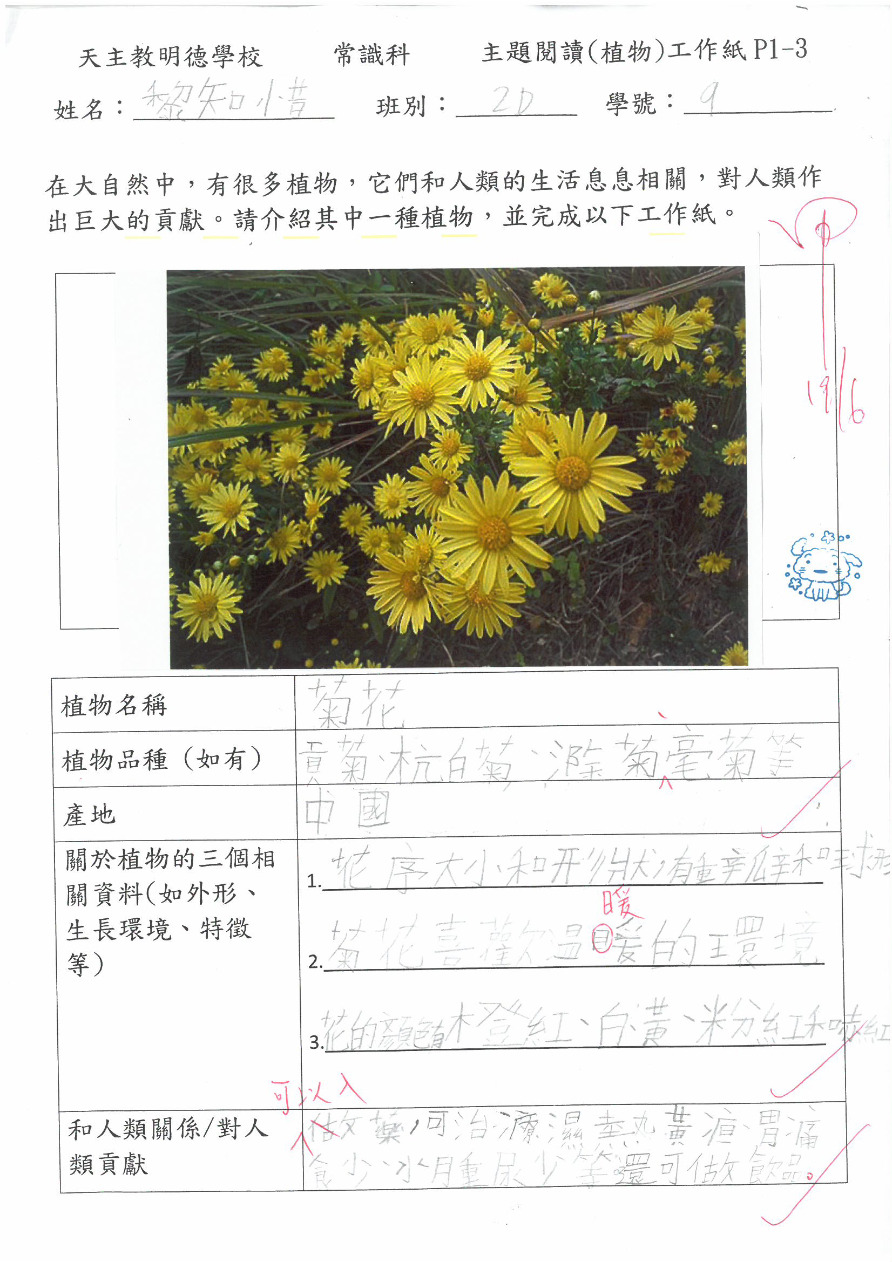 天主教明德學校 常識科 主題閱讀(植物)工作紙 P1-3
姓名：黎知惜 班別： 2D 學號： 9
在大自然中，有很多植物，它們和人類的生活息息相關，對人類作
出巨大的貢獻。請介紹其中一種植物，並完成以下工作紙。
19/6
植物名稱 菊花
植物品種（如有） 貢菊、杭白菊、滁菊、毫菊等
產地 中國
關於植物的三個相關資料(如外形、生長環境、特徵等)
1. 花序大小和形狀,有重辛瓜辛和球形
暖
2. 菊花喜歡溫暖的環境
3. 花的顏色有橙紅、白、黃、粉紅和
可以入
和人類關係/對人類貢獻
做藥,可治療濕熱黃疸胃痛
食少、水腫尿少等還可做飲品。